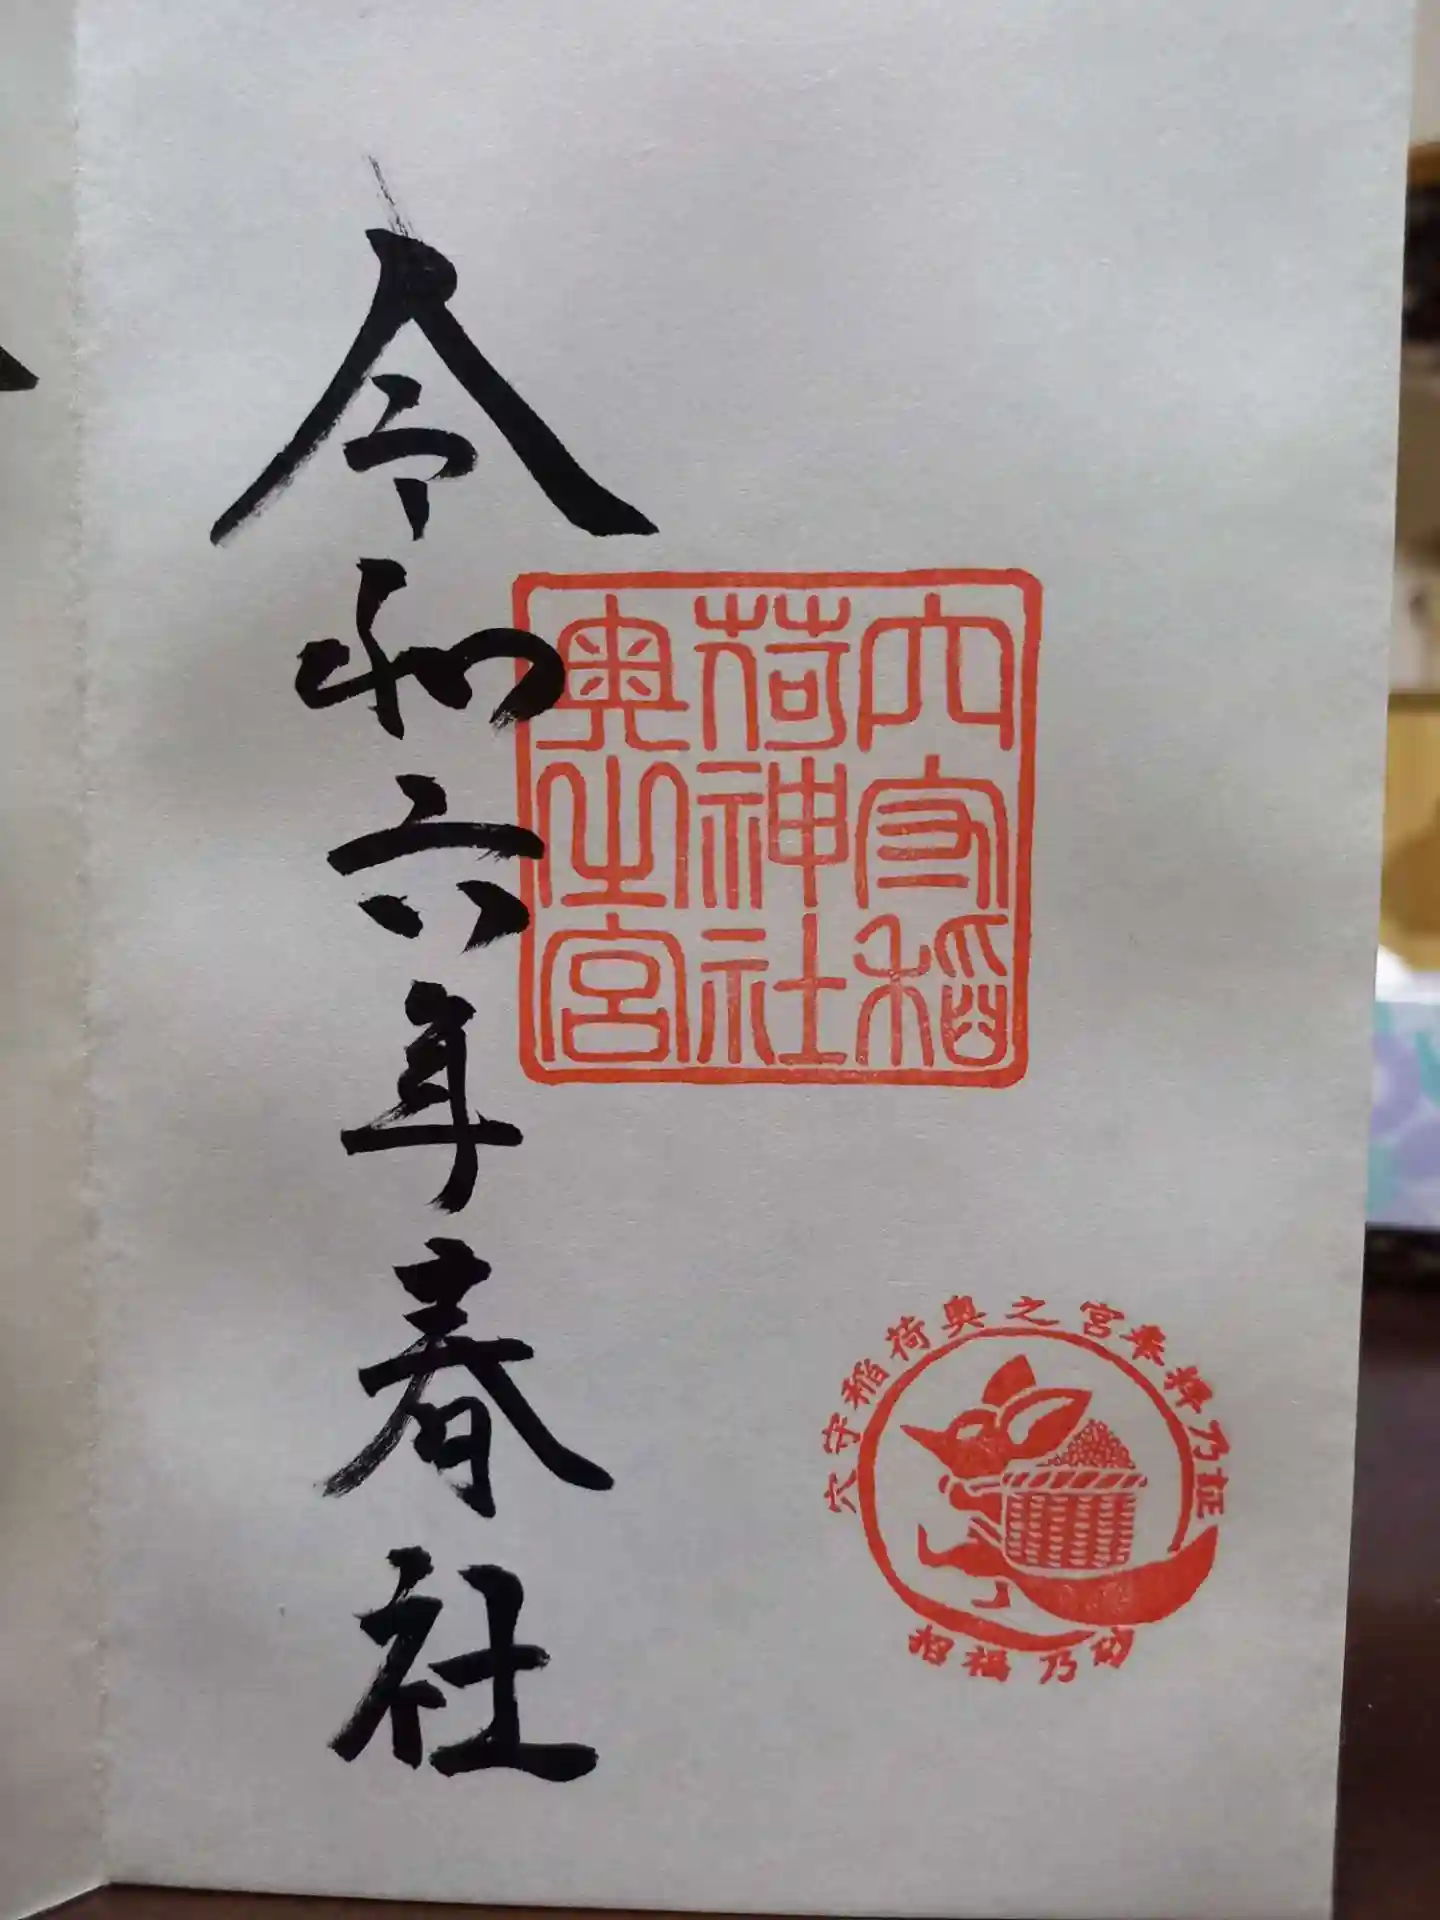 令和六年春社
穴守稲
荷神社
奥之宮
穴守稲荷奥之宮乃証
招福乃砂